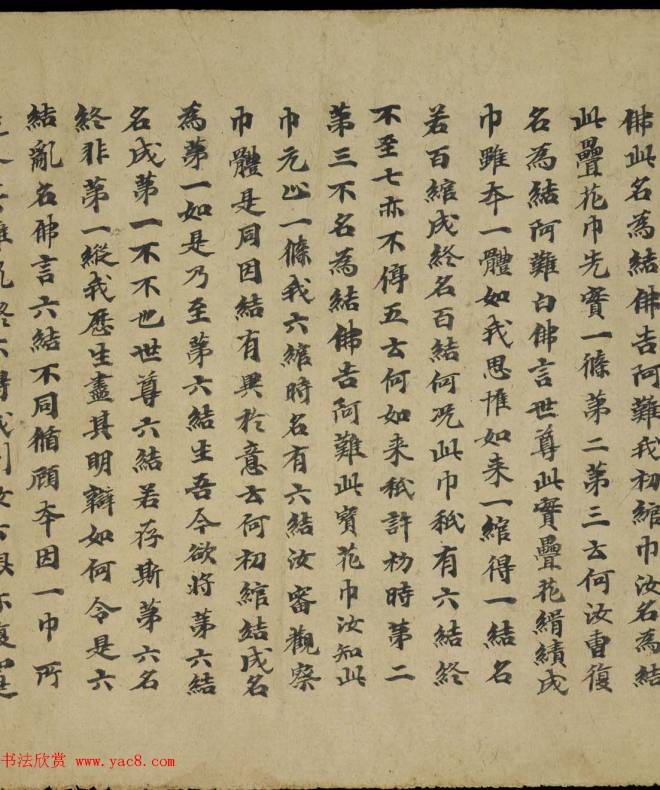 佛此名為結佛告阿難我初綰巾汝名為結
此疊花巾先實一條第二第三云何汝曹復
名為結阿難白佛言世尊此寶疊花緝績成
巾雖本一體如我思惟如来一綰得一結名
若百綰成終名百結何况此巾秖有六結終
不至七亦不停五云何如来秖許初時第二
第三不名為結佛告阿難此寶花巾汝知此
巾元止一條我六綰時名有六結汝審觀察
巾體是同因結有異於意云何初綰結成名
為第一如是乃至第六結生吾今欲將第六結
名成第一不不也世尊六結若存斯第六名
終非第一縱我歷生盡其明辯如何令是六
結亂名佛言六結不同循顧本因一巾所
书法欣赏 www.yac8.com